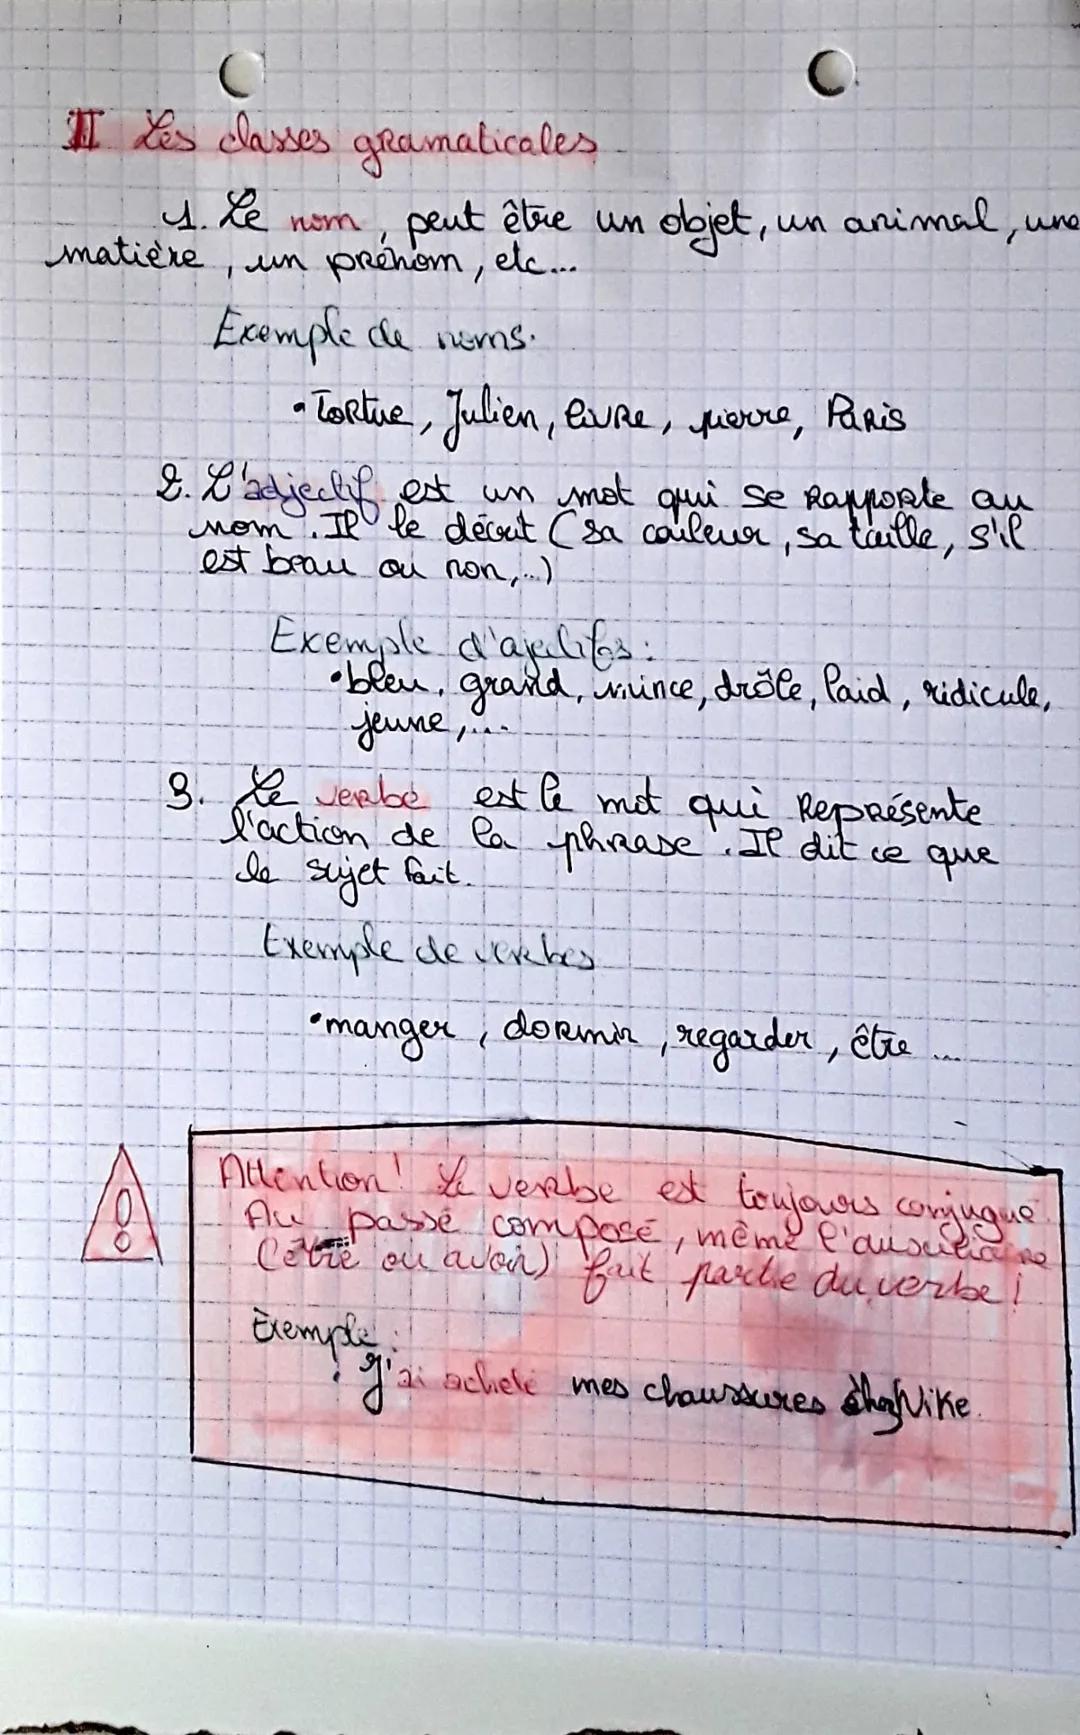 II Les classes gramaticales
1. Le nom, peut être un objet, un animal, une
matière, un prénom, etc...
Exemple de noms.
• Tortue, Julien, livre, pierre, Paris
2. L'adjectif est un mot qui se rapporte au
nom. Il le décrit (sa couleur, sa taille, s'il
est beau ou non,...)
Exemple d'ajectifs :
• bleu, grand, mince, drôle, laid, ridicule,
jeune,...
3. Le verbe est le mot qui représente
l'action de la phrase. Il dit ce que
le sujet fait.
Exemple de verbes
• manger, dormir, regarder, être ...
Attention! Le verbe est toujours conjugué.
Au passé composé, même l'auxiliaire
(être ou avoir) fait partie du verbe!
Exemple :
J'ai acheté mes chaussures chez Nike.